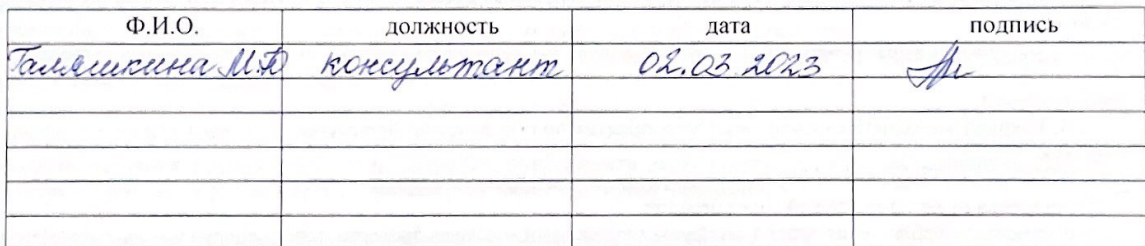 Ф.И.О. должность дата подпись
Галяшкина М.Ю консультант 02.03.2023